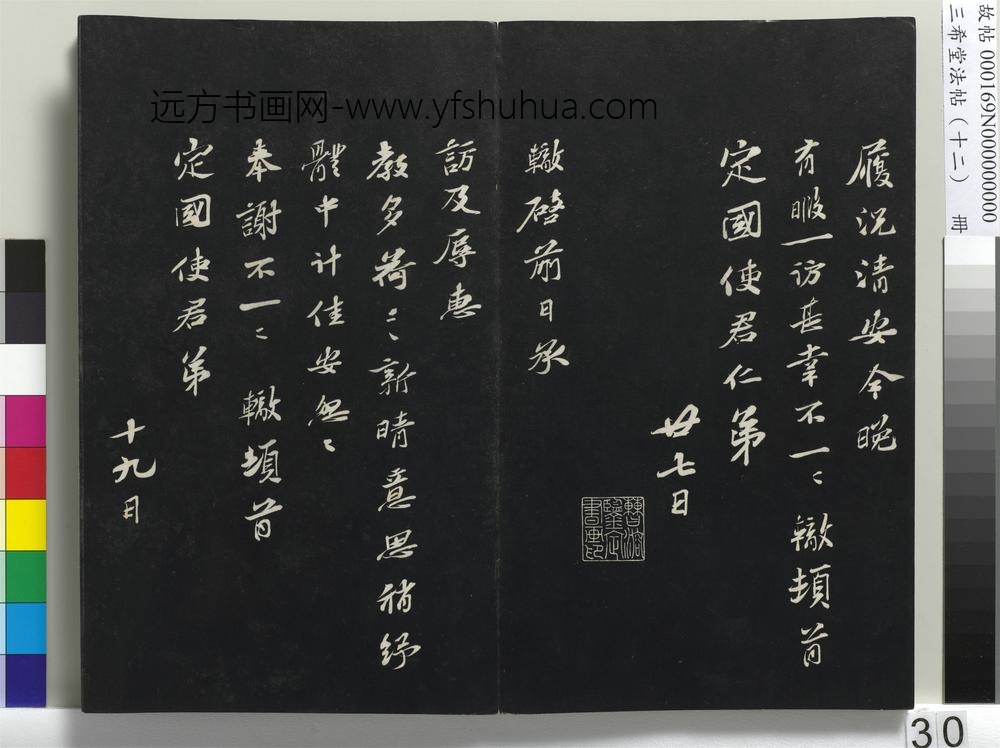 履況清安今晚
有暇一訪甚幸不一〻 轍頓首
定國使君仁弟
廿七日
轍啓前日承
訪及辱惠
教多荷〻新晴意思稍紓
體中計佳安忽〻
奉謝不一〻 轍頓首
定國使君弟
十九日
远方书画网-www.yfshuhua.com
故帖 000169N000000000
三希堂法帖(十二) 冊
30